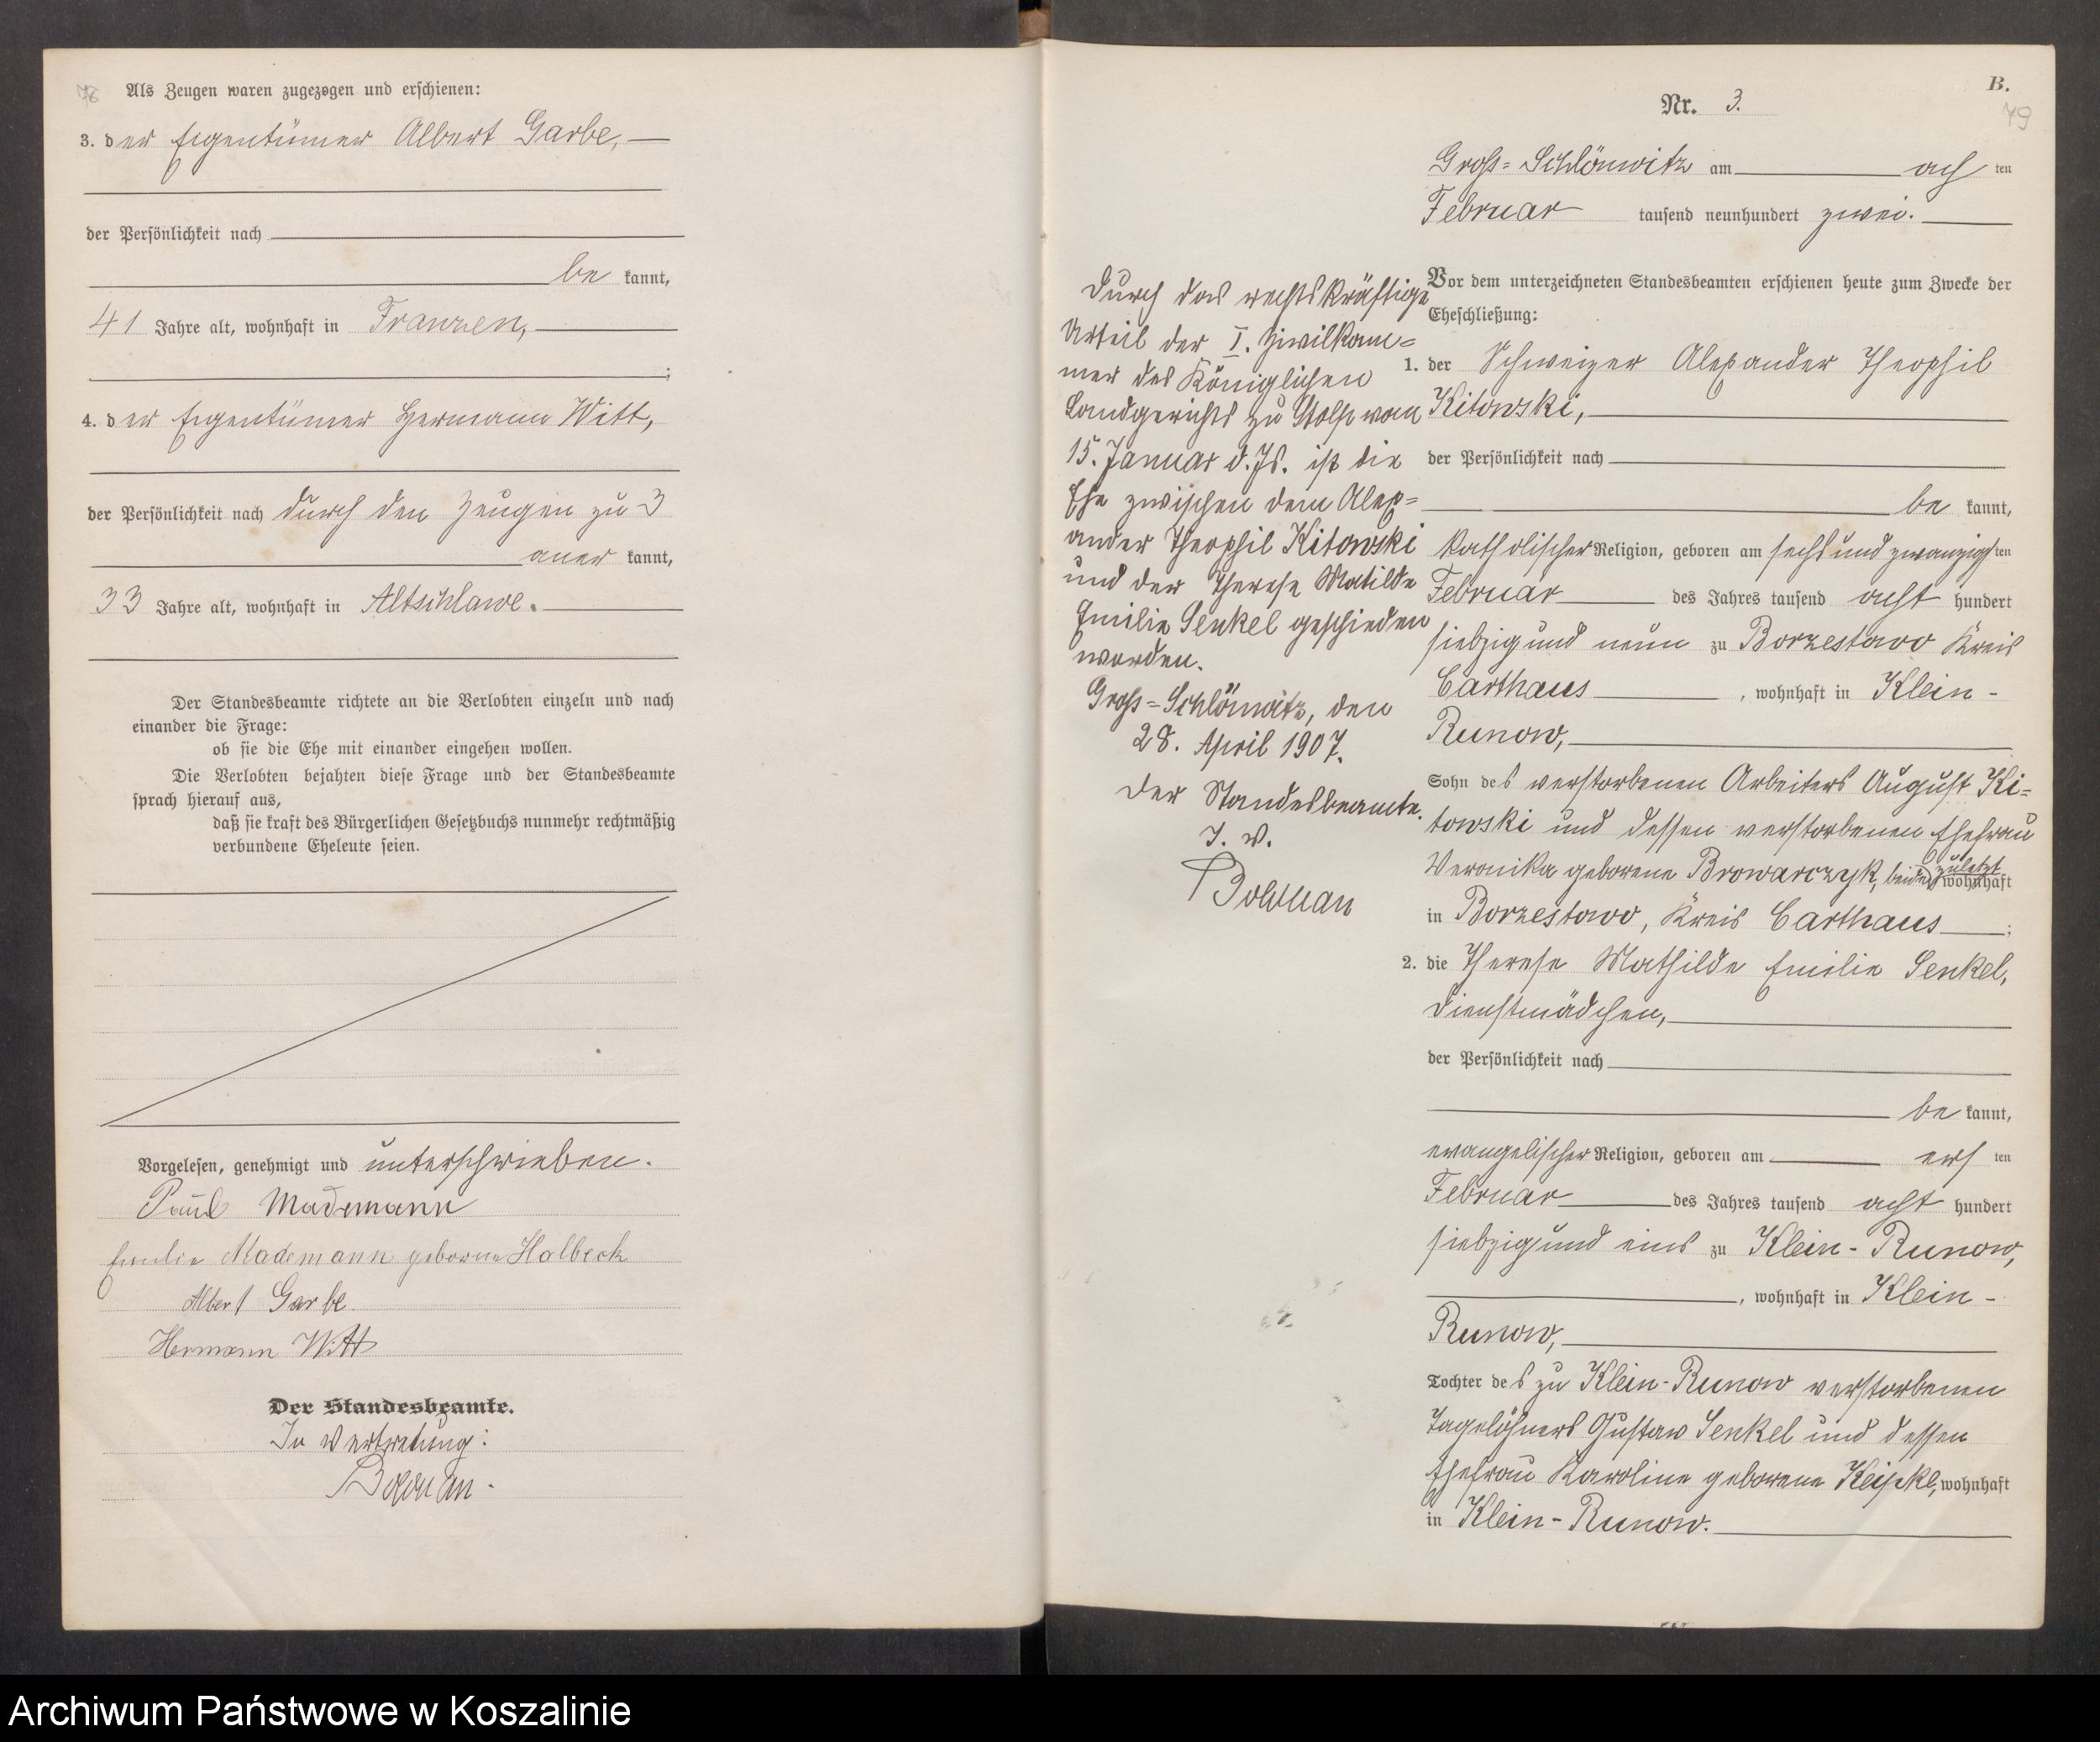 78
Als Zeugen waren zugezogen und erschienen:
3. der Eigentümer Albert Garbe,
der Persönlichkeit nach
be kannt,
41 Jahre alt, wohnhaft in Franzen,
;
4. der Eigentümer Hermann Witt,
der Persönlichkeit nach durch den Zeugen zu 3
aner kannt,
33 Jahre alt, wohnhaft in Altschlawe.
Der Standesbeamte richtete an die Verlobten einzeln und nach
einander die Frage:
ob sie die Ehe mit einander eingehen wollen.
Die Verlobten bejahten diese Frage und der Standesbeamte
sprach hierauf aus,
daß sie kraft des Bürgerlichen Gesetzbuchs nunmehr rechtmäßig
verbundene Eheleute seien.
Vorgelesen, genehmigt und unterschrieben.
Paul Mademann
Emilie Mademann geborne Halbeck
Albert Garbe
Hermann Witt
Der Standesbeamte.
In Vertretung:
B.
Nr. 3.
79
Groß-Schlönwitz am ach ten
Februar tausend neunhundert zwei.
Vor dem unterzeichneten Standesbeamten erschienen heute zum Zwecke der
Eheschließung:
1. der Schweizer Alexander Theophil
Kitowski,
der Persönlichkeit nach
be kannt,
katholischer Religion, geboren am sechsundzwanzigs ten
Februar des Jahres tausend acht hundert
siebzigund neun zu Borzestowo Kreis
Carthaus, wohnhaft in Klein-
Runow,
Sohn des verstorbenen Arbeiters August Ki=
towski und dessen verstorbenen Ehefrau
Veronika geborene Browarczyk, beide zuletzt wohnhaft
in Borzestowo, Kreis Carthaus ;
2. die Therese Mathilde Emilie Senkel,
Dienstmädchen,
der Persönlichkeit nach
be kannt,
evangelischer Religion, geboren am ers ten
Februar des Jahres tausend acht hundert
siebzigund eins zu Klein-Runow,
, wohnhaft in Klein-
Runow,
Tochter des zu Klein-Runow verstorbenen
Tagelöhners Gustav Senkel und dessen
Ehefrau Karoline geborene wohnhaft
in Klein-Runow.
Durch das rechtskräftige
Urteil der I. Zivilkam=
mer des Königlichen
Landgerichts zu Stolp vom
15. Januar d. Js. ist die
Ehe zwischen dem Alex=
ander Theophil Kitowski
und der Therese Matilde
Emilie Senkel geschieden
worden.
Groß-Schlönwitz, den
28. April 1907.
Der Standesbeamte.
I. V.
Archiwum Państwowe w Koszalinie